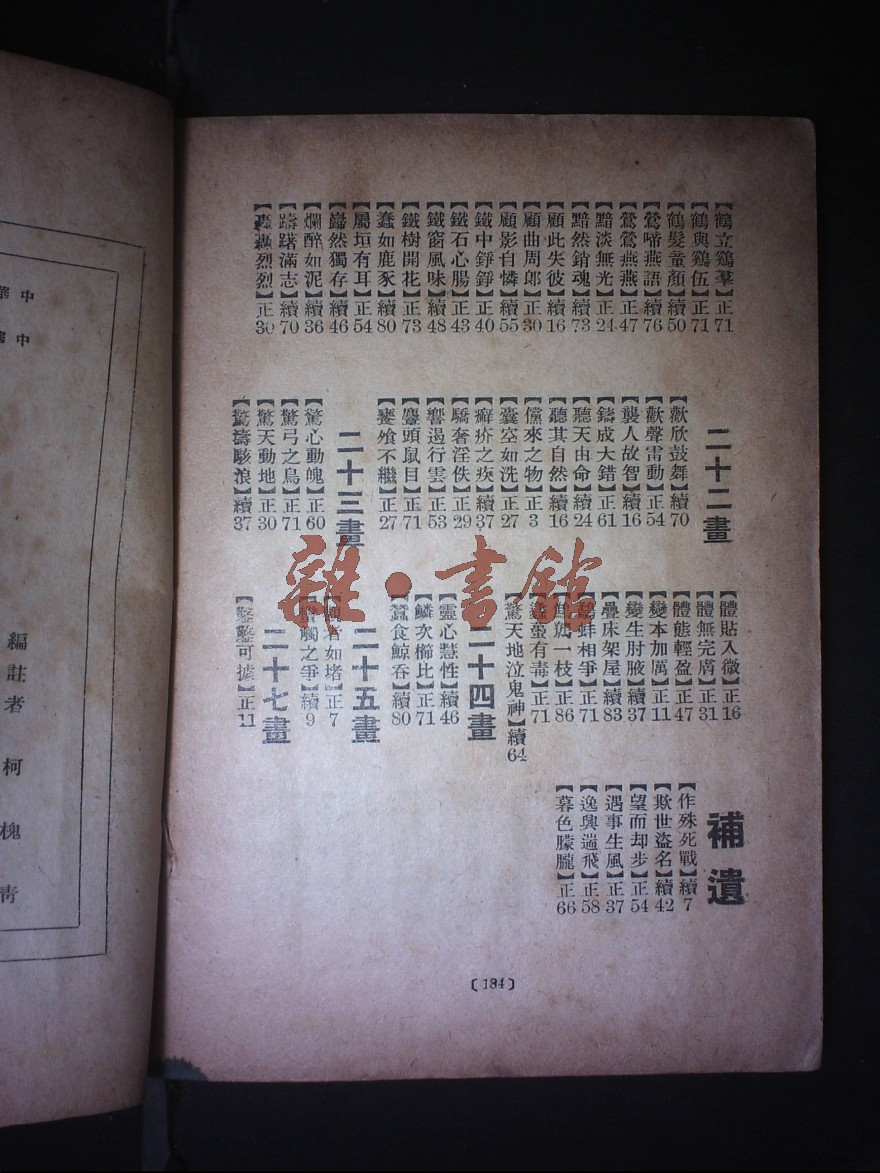 【鶴立鷄羣】正71
【鶴與鷄伍】正71
【鶴髮童顏】續50
【鶯啼燕語】續76
【鶯鶯燕燕】正47
【黯淡無光】正24
【黯然銷魂】續73
【顧此失彼】續16
【顧曲周郎】正30
【顧影自憐】續55
【鐵中錚錚】正40
【鐵石心腸】正43
【鐵窗風味】續48
【鐵樹開花】正73
【蠢如鹿豕】續80
【屬垣有耳】正54
【巋然獨存】續46
【爛醉如泥】續36
【躊躇滿志】續70
【轟轟烈烈】正30
二十二畫
【歡欣鼓舞】續70
【歡聲雷動】正54
【襲人故智】續16
【鑄成大錯】正61
【聽天由命】續24
【聽其自然】續16
【儻來之物】正3
【囊空如洗】正27
【癬疥之疾】續37
【驕奢淫佚】正29
【響遏行雲】正53
【麞頭鼠目】正71
【饔飧不繼】正27
二十三畫
【驚心動魄】正60
【驚弓之鳥】正71
【驚天動地】正30
【驚濤駭浪】續37
【體貼入微】正16
【體無完膚】正31
【體態輕盈】正47
【變本加厲】正11
【變生肘腋】續37
【疊床架屋】續83
【鷸蚌相爭】正71
【鷦鷯一枝】正86
【蠭蠆有毒】正71
【驚天地泣鬼神】續64
二十四畫
【靈心慧性】續46
【鱗次櫛比】正71
【蠶食鯨吞】續80
二十五畫
【觀者如堵】正7
【蠻觸之爭】續9
二十七畫
【鑿鑿可據】正11
補遺
【作殊死戰】續7
【欺世盜名】續42
【望而却步】正54
【遇事生風】正37
【逸興遄飛】正58
【暮色朦朧】正66
〔184〕
中華
中華
編註者 柯槐青
雜·書館